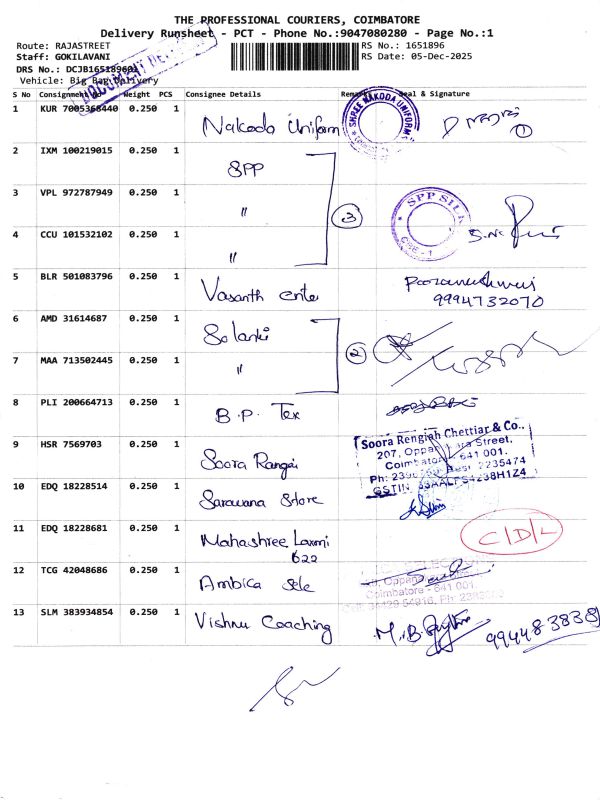 THE PROFESSIONAL COURIERS, COIMBATORE
Delivery Runsheet - PCT - Phone No.:9047080280 - Page No.:1
Route: RAJASTREET RS No.: 1651896
Staff: GOKILAVANI RS Date: 05-Dec-2025
DRS No.: DCJB16518960
Vehicle: Big Bag Delivery
S No Consignment No Weight PCS Consignee Details Remarks Seal & Signature
1 KUR 7005368440 0.250 1 Nakoda Uniform SHREE NAKODA UNIFORMS 1
2 IXM 100219015 0.250 1 SPP
3 VPL 972787949 0.250 1 " 3 SPP SILK CBE - 1
4 CCU 101532102 0.250 1 "
5 BLR 501083796 0.250 1 Vasanth ente Poorameshwari
9994732070
6 AMD 31614687 0.250 1 Solanki
7 MAA 713502445 0.250 1 " 2
8 PLI 200664713 0.250 1 B.P. Tex
9 HSR 7569703 0.250 1 Soora Rangai
Soora Rengiah Chettiar & Co.,
207, Oppanakara Street,
Coimbatore - 641 001.
Ph: 2235474
GSTIN
10 EDQ 18228514 0.250 1 Sarawana Store
11 EDQ 18228681 0.250 1 Mahashree Laxmi
622 C/D/L
12 TCG 42048686 0.250 1 Ambica Sele
Coimbatore - 641 001.
13 SLM 383934854 0.250 1 Vishnu Coaching M.B. 9944838381